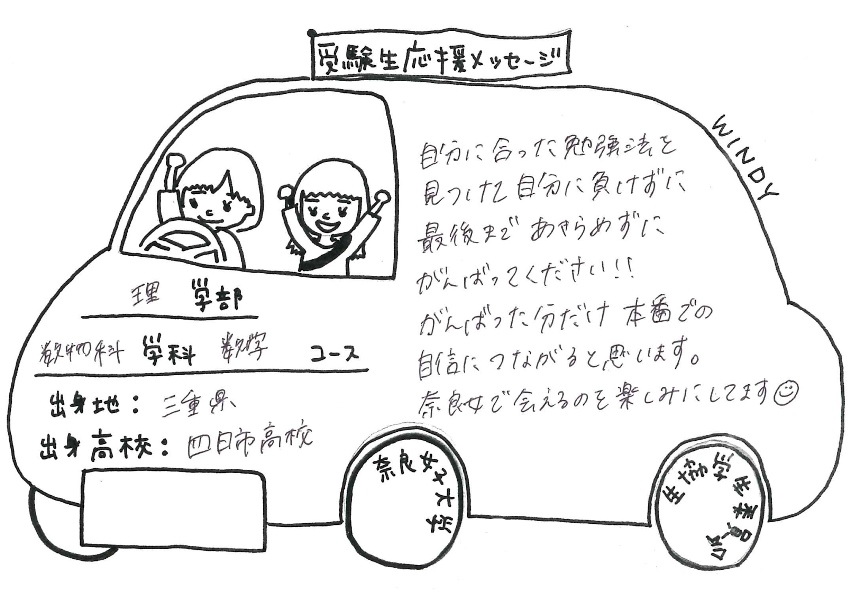 受験生応援メッセージ
WINDY
自分に合った勉強法を
見つけて自分に負けずに
最後まであきらめずに
がんばってください!!
がんばった分だけ本番での
自信につながると思います。
奈良女で会えるのを楽しみにしてます☺
理 学部
数物科 学科 数学 コース
出身地：三重県
出身高校：四日市高校
奈良女子大学
生協学生委員会